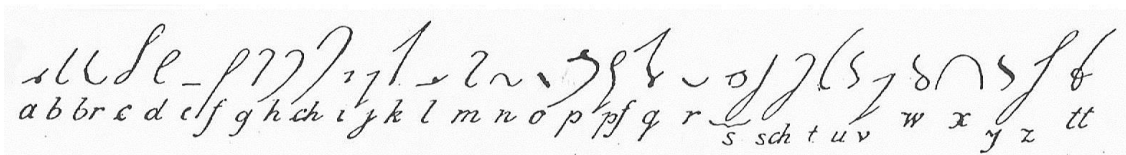 a b br c d e f g h ch i j k l m n o p pf q r s sch t u v w x y z tt